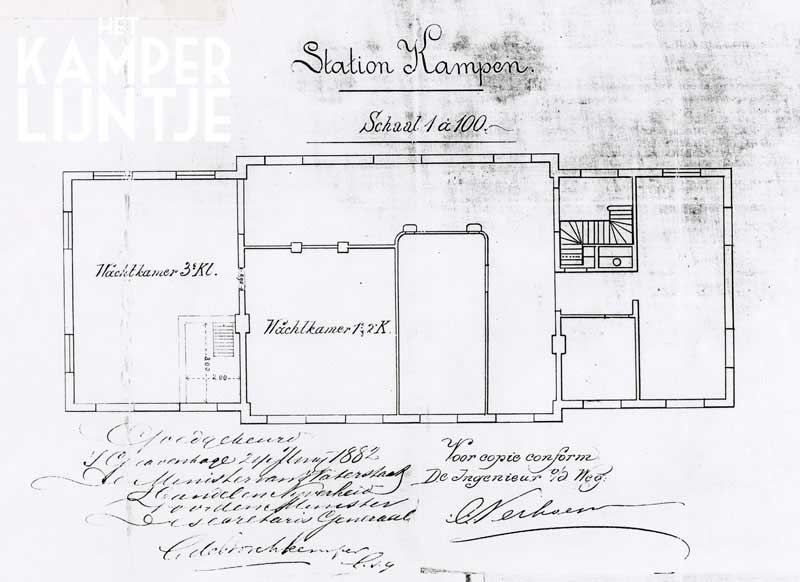 HET
KAMPER
LIJNTJE
Station Kampen.
Schaal 1 à 100.
Wachtkamer 3e Kl.
Wachtkamer 1e 2e K.
3.00
2.00
Goedgekeurd
's Gravenhage 24 Junij 1882
De Minister van Waterstaat
Handel en Nijverheid
Voor den Minister
De secretaris Generaal
Voor copie conform
De Ingenieur o/d Weg.